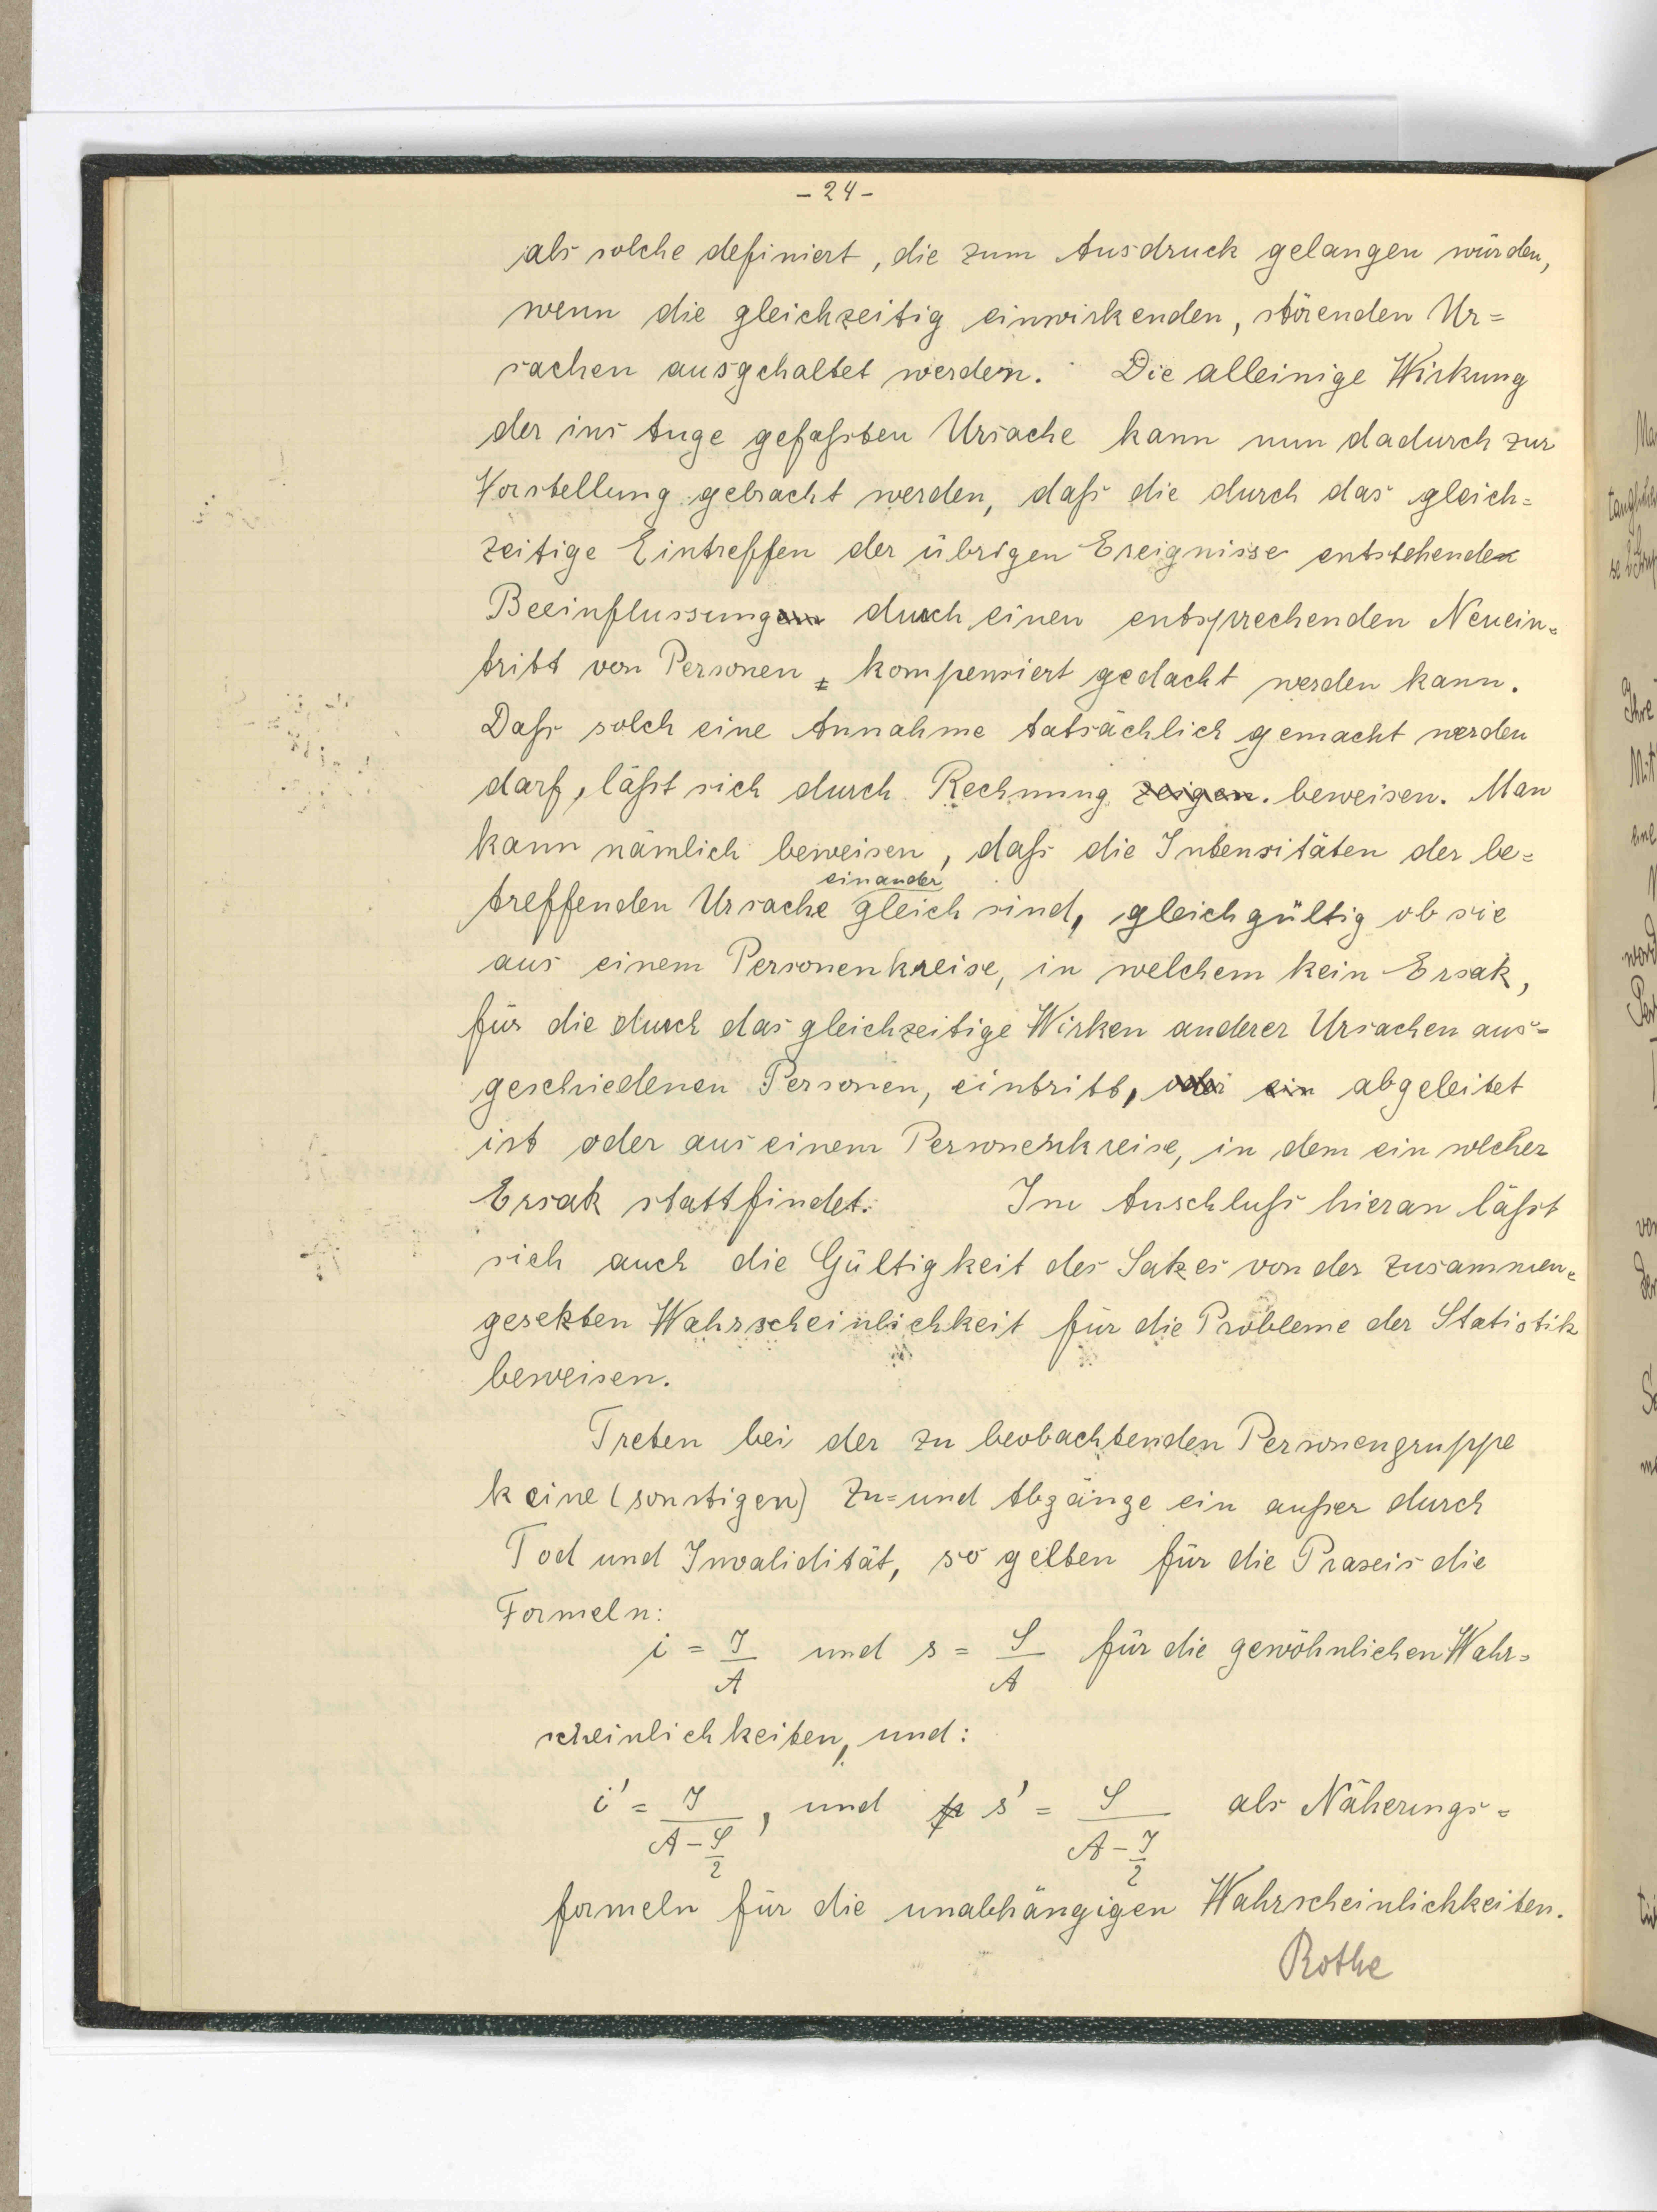 - 24 -
als solche definiert, die zum Ausdruck gelangen würden,
wenn die gleichzeitig einwirkenden, störenden Ur=
sachen ausgehaltet werden. Die alleinige Wirkung
der ins Auge gefaßten Ursache kann nun dadurch zur
Vorstellung gebracht werden, daß die durch das gleich=
zeitige Eintreffen der übrigen Ereignisse entstehende
Beeinflussung durch einen entsprechenden Neuein=
tritt von Personen kompensiert gedacht werden kann.
Daß solch eine Annahme tatsächlich gemacht werden
darf, läßt sich durch Rechnung zeigen. beweisen. Man
kann nämlich beweisen, daß die Intensitäten der be=
einander
treffenden Ursache gleich sind, gleichgültig ob sie
aus einem Personenkreise, in welchem kein Ersatz,
für die durch das gleichzeitige Wirken anderer Ursachen aus=
geschiedenen Personen, eintritt, oder ein abgeleitet
ist oder aus einem Personenkreise, in dem ein solcher
Ersatz stattfindet. Im Anschluß hieran läßt
sich auch die Gültigkeit des Satzes von der zusammen=
gesetzten Wahrscheinlichkeit für die Probleme der Statistik
beweisen.
Treten bei der zu beobachtenden Personengruppe
keine (sonstigen) Zu= und Abgänge ein außer durch
Tod und Invalidität, so gelten für die Praxis die
Formeln:
i = J/A und s = S/A für die gewöhnlichen Wahr=
scheinlichkeiten, und:
i' = J/(A - S/2), und s' = S/(A - J/2) als Näherungs=
formeln für die unabhängigen Wahrscheinlichkeiten.
Rothe